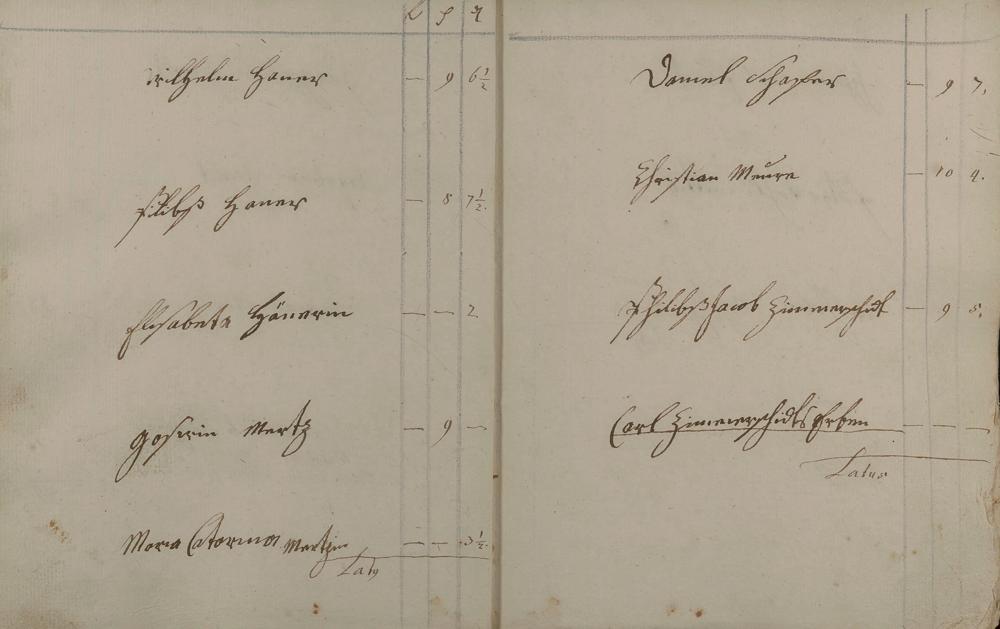 Wilhelm Haner — 9 6½
Philibß Haner — 8 7½.
Elisabeta Hänerin — — 2
Goswin Mertz — 9 —
Maria Catarina Mertzin — — 3½
Latus
Daniel Schaffer — 9 7.
Christian Meure — 10 4.
Philibß Jacob Zimmerschidt — 9 5.
Carl Zimmerschidts Erben — — —
Latus